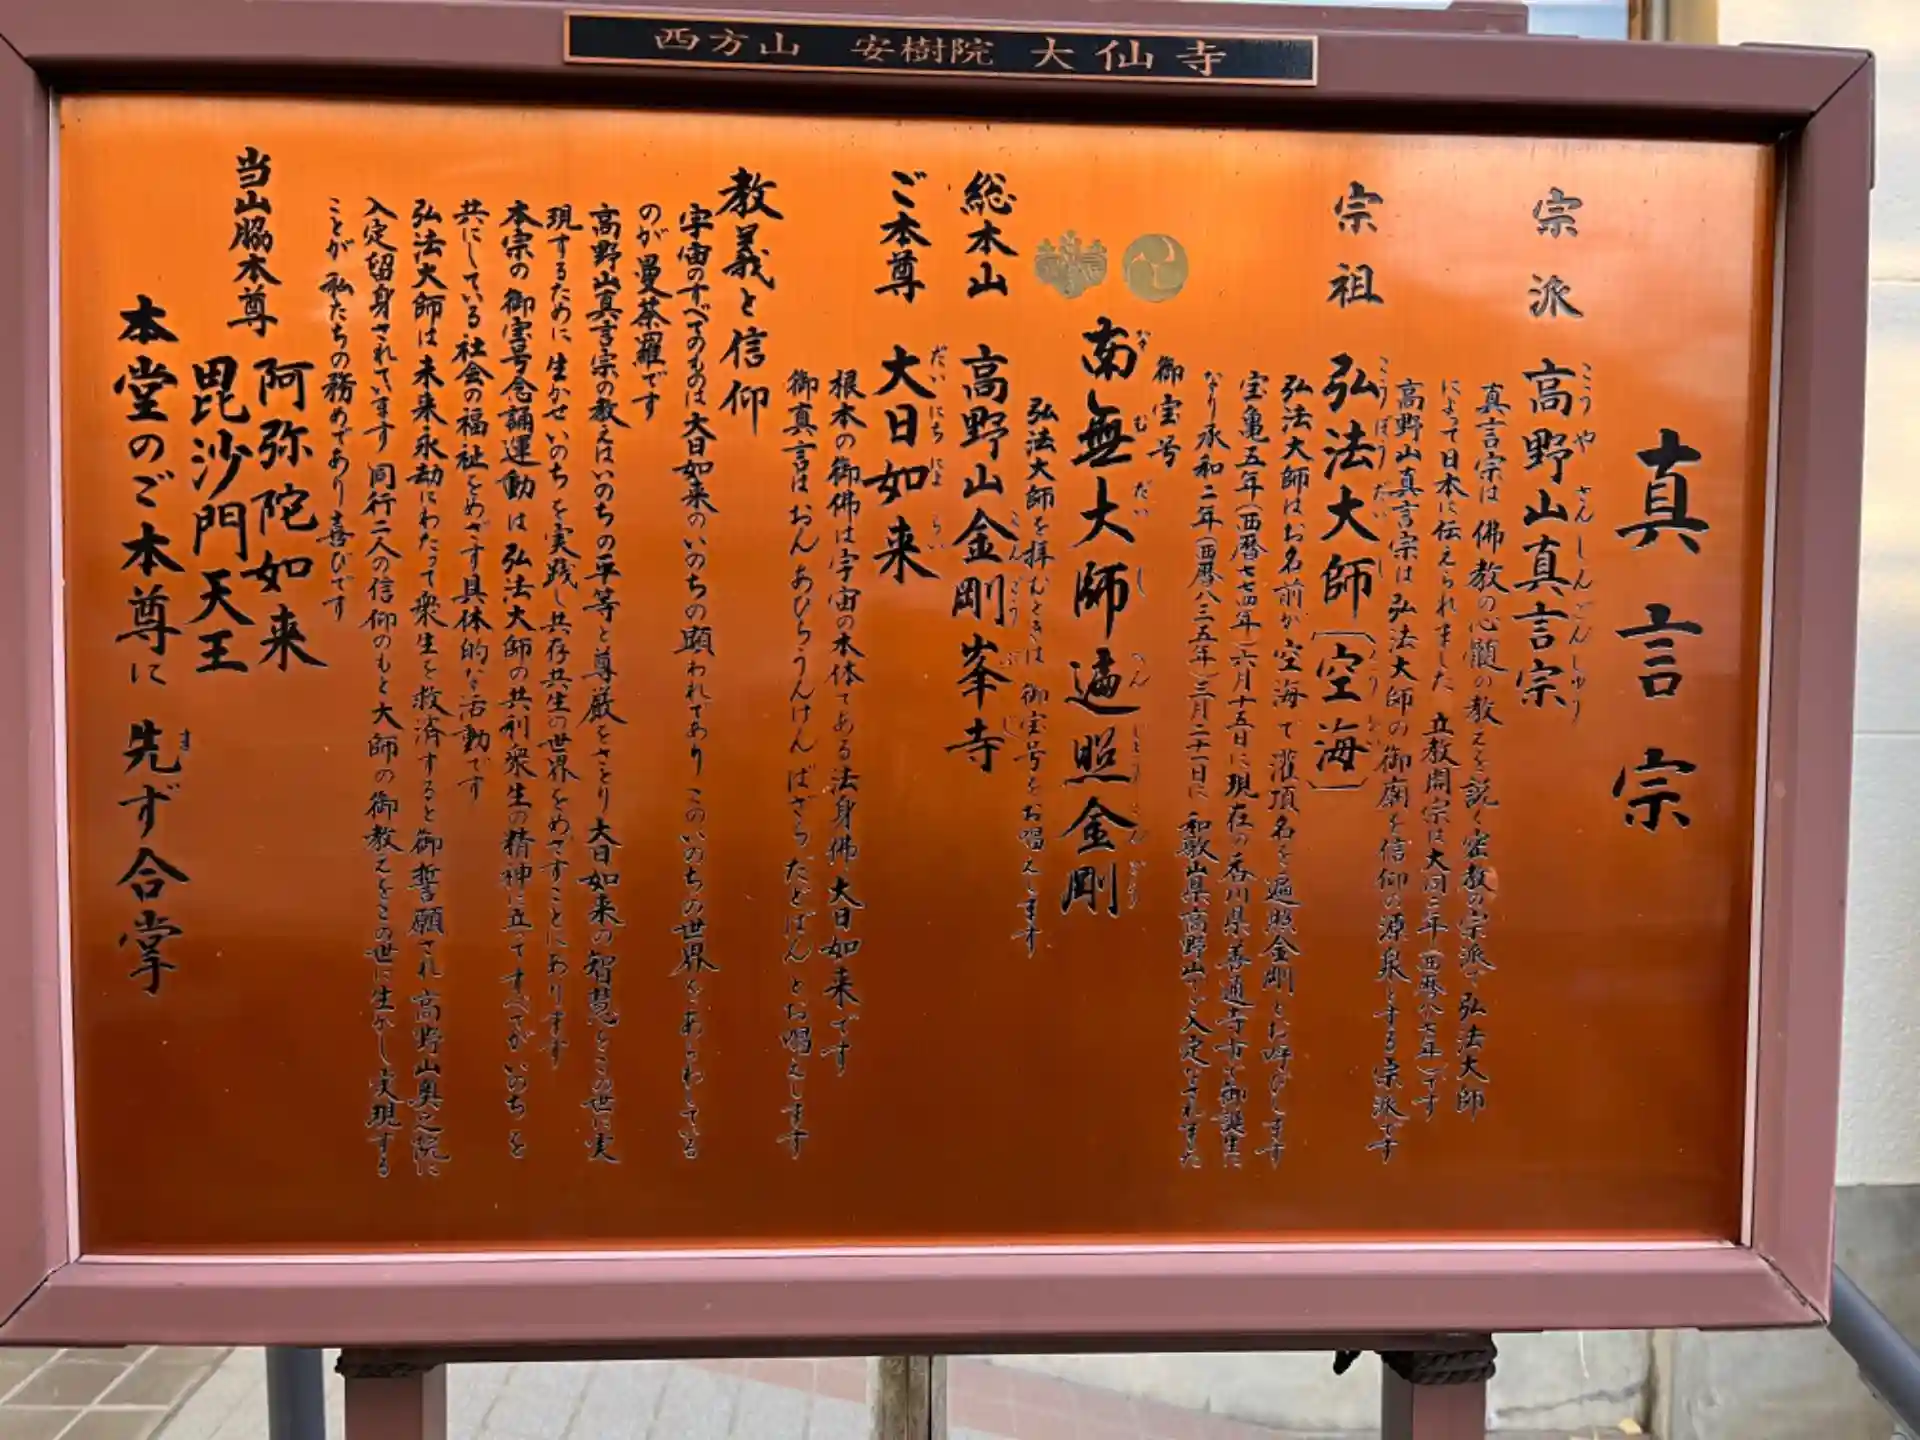 西方山 安樹院 大仙寺
真言宗
宗派 高野山真言宗
こうやさんしんごんしゅう
真言宗は佛教の心髄の教えを説く密教の宗派で弘法大師
によって日本に伝えられました 立教開宗は大同二年(西暦八〇七年)です
高野山真言宗は弘法大師の御廟を信仰の源泉とする宗派です
宗祖 弘法大師〔空海〕
こうぼうだいし くうかい
弘法大師はお名前が空海で灌頂名を遍照金剛とお呼びします
宝亀五年(西暦七七四年)六月十五日に現在の香川県善通寺市で御誕生に
なり承和二年(西暦八三五年)三月二十一日に和歌山県高野山でご入定なされました
御宝号
南無大師遍照金剛
なむだいしへんじょうこんごう
弘法大師を拝むときは御宝号をお唱えします
総本山 高野山金剛峯寺
こんごうぶじ
ご本尊 大日如来
だいにちにょらい
根本の御佛は宇宙の本体である法身佛大日如来です
御真言はおん あびらうんけん ばざらだどばん とお唱えします
教義と信仰
宇宙のすべてのものは大日如来のいのちの顕われであり このいのちの世界をあらわしている
のが曼荼羅です
高野山真言宗の教えはいのちの平等と尊厳をさとり大日如来の智慧をこの世に実
現するために生かせいのちを実践し共存共生の世界をめざすことにあります
本宗の御宝号念誦運動は弘法大師の共利衆生の精神に立ってすべてがいのちを
共にしている社会の福祉をめざす具体的な活動です
弘法大師は未来永劫にわたって衆生を救済すると御誓願され高野山奥之院に
入定留身されています 同行二人の信仰のもと大師の御教えをこの世に生かし実現する
ことが私たちの務めであり喜びです
当山脇本尊 阿弥陀如来
毘沙門天王
本堂のご本尊に先ず合掌
ま